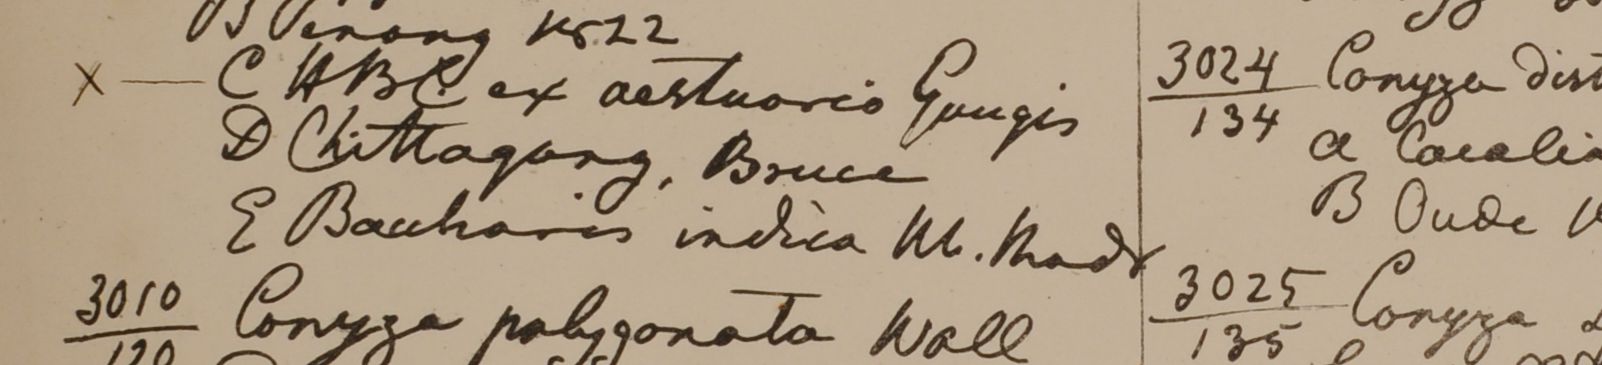 B Penang 1822
X — C HBC ex aestuario Gangis
D Chittagong, Bruce
E Baccharis indica
3010 Conyza polygonata Wall
120
3024 Conyza dist
134
a Cacalia
B Oude
3025 Conyza
135